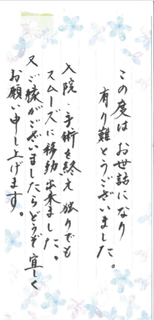 この度は お世話になり
有り難とうございました。
入院・手術を終え 独りでも
スムーズに移動出来ました。
又ご縁がございましたらどうぞ宜しく
お願い申し上げます。